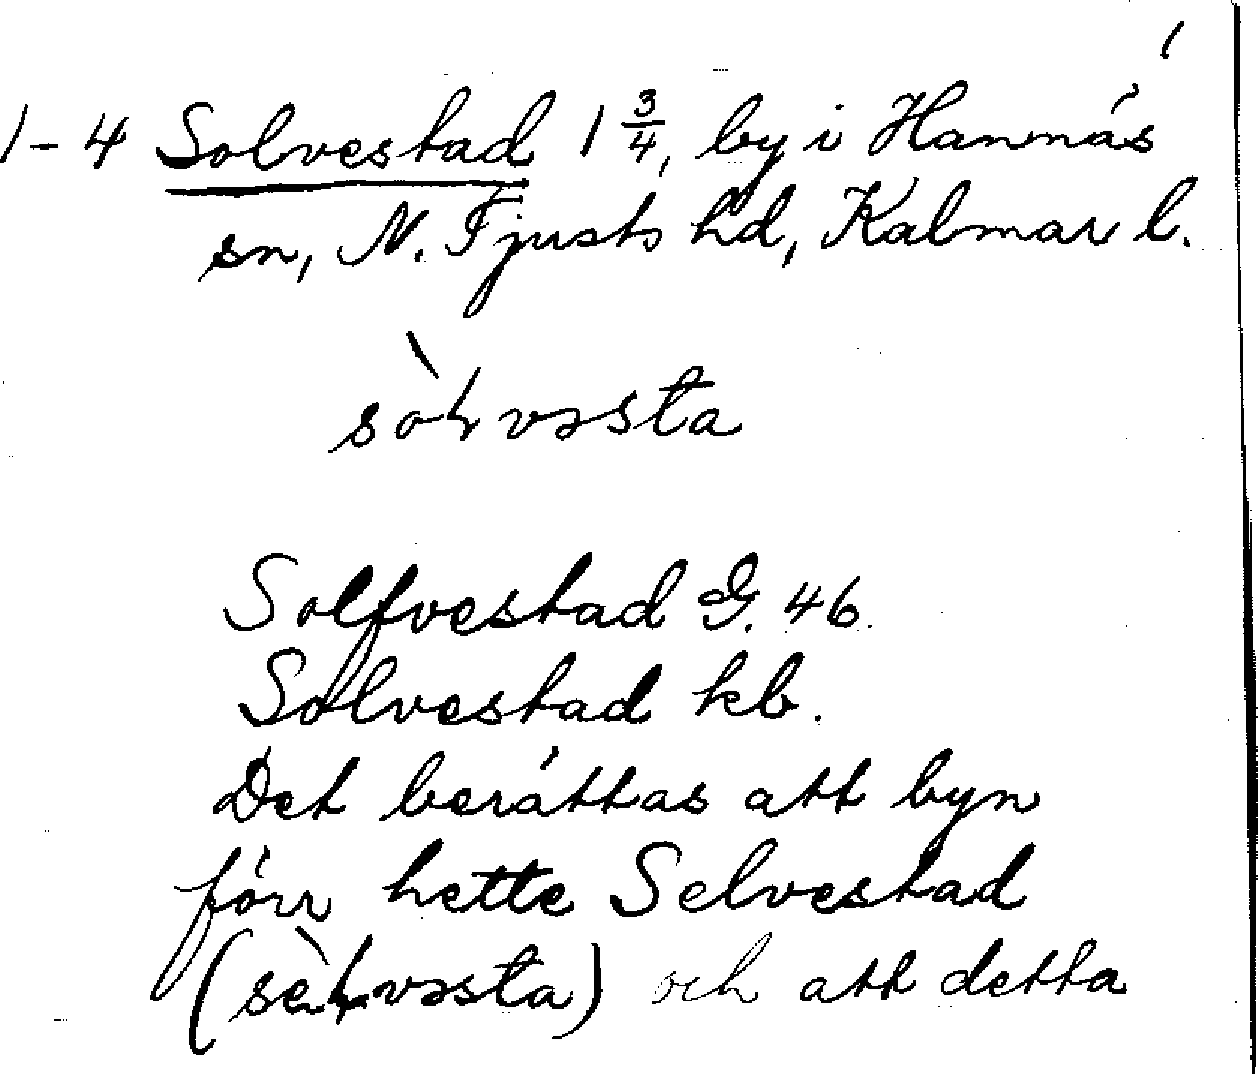 1-4 Solvestad 1 3/4, by i Hannäs
sn, N. Tjusts hd, Kalmar l.
sòɫvəsta
Solfvestad G. 46.
Solvestad kb.
Det berättas att byn
förr hette Selvestad
(sèɫvəsta) och att detta